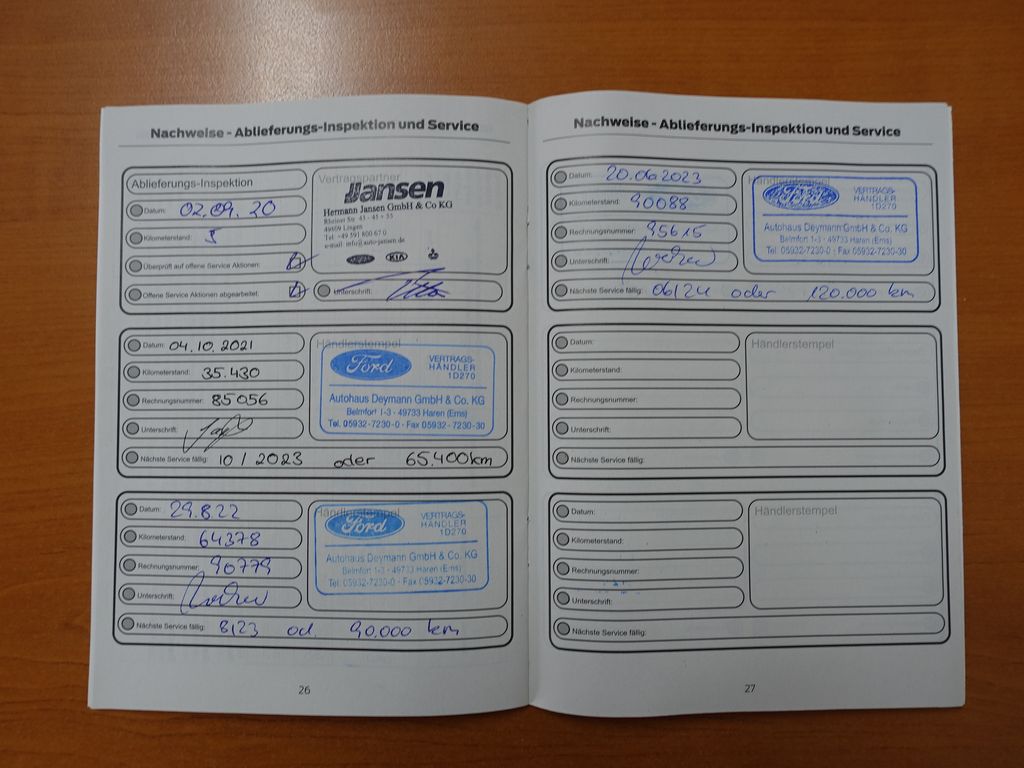 Nachweise - Ablieferungs-Inspektion und Service
Ablieferungs-Inspektion
Datum: 02.09.20
Kilometerstand: 5
Überprüft auf offene Service Aktionen:
Offene Service Aktionen abgearbeitet:
Vertragspartner
Jansen
Hermann Jansen GmbH & Co KG
Rheiner Str.
49809 Lingen
Tel. +49 591 800 67 0
e-mail: info@auto-jansen.de
KIA
Unterschrift:
Datum: 04.10.2021
Kilometerstand: 35.430
Rechnungsnummer: 85056
Unterschrift:
Nächste Service fällig: 10 / 2023 oder 65.400km
Händlerstempel
Ford
VERTRAGS-
HÄNDLER
1D270
Autohaus Deymann GmbH & Co. KG
Belmfort 1-3 - 49733 Haren (Ems)
Tel. 05932-7230-0 - Fax 05932-7230-30
Datum: 29.8.22
Kilometerstand: 64378
Rechnungsnummer: 90779
Unterschrift:
Nächste Service fällig: 8/23 od. 90.000 km
Händlerstempel
Ford
VERTRAGS-
HÄNDLER
1D270
Autohaus Deymann GmbH & Co. KG
Belmfort 1-3 - 49733 Haren (Ems)
Tel. 05932-7230-0 - Fax 05932-7230-30
26
Nachweise - Ablieferungs-Inspektion und Service
Datum: 20.06.2023
Kilometerstand: 90088
Rechnungsnummer: 95615
Unterschrift:
Nächste Service fällig: 06/24 oder 120.000 km
Händlerstempel
Ford
VERTRAGS-
HÄNDLER
1D270
Autohaus Deymann GmbH & Co. KG
Belmfort 1-3 - 49733 Haren (Ems)
Tel. 05932-7230-0 - Fax 05932-7230-30
Datum:
Kilometerstand:
Rechnungsnummer:
Unterschrift:
Nächste Service fällig:
Händlerstempel
Datum:
Kilometerstand:
Rechnungsnummer:
Unterschrift:
Nächste Service fällig:
Händlerstempel
27